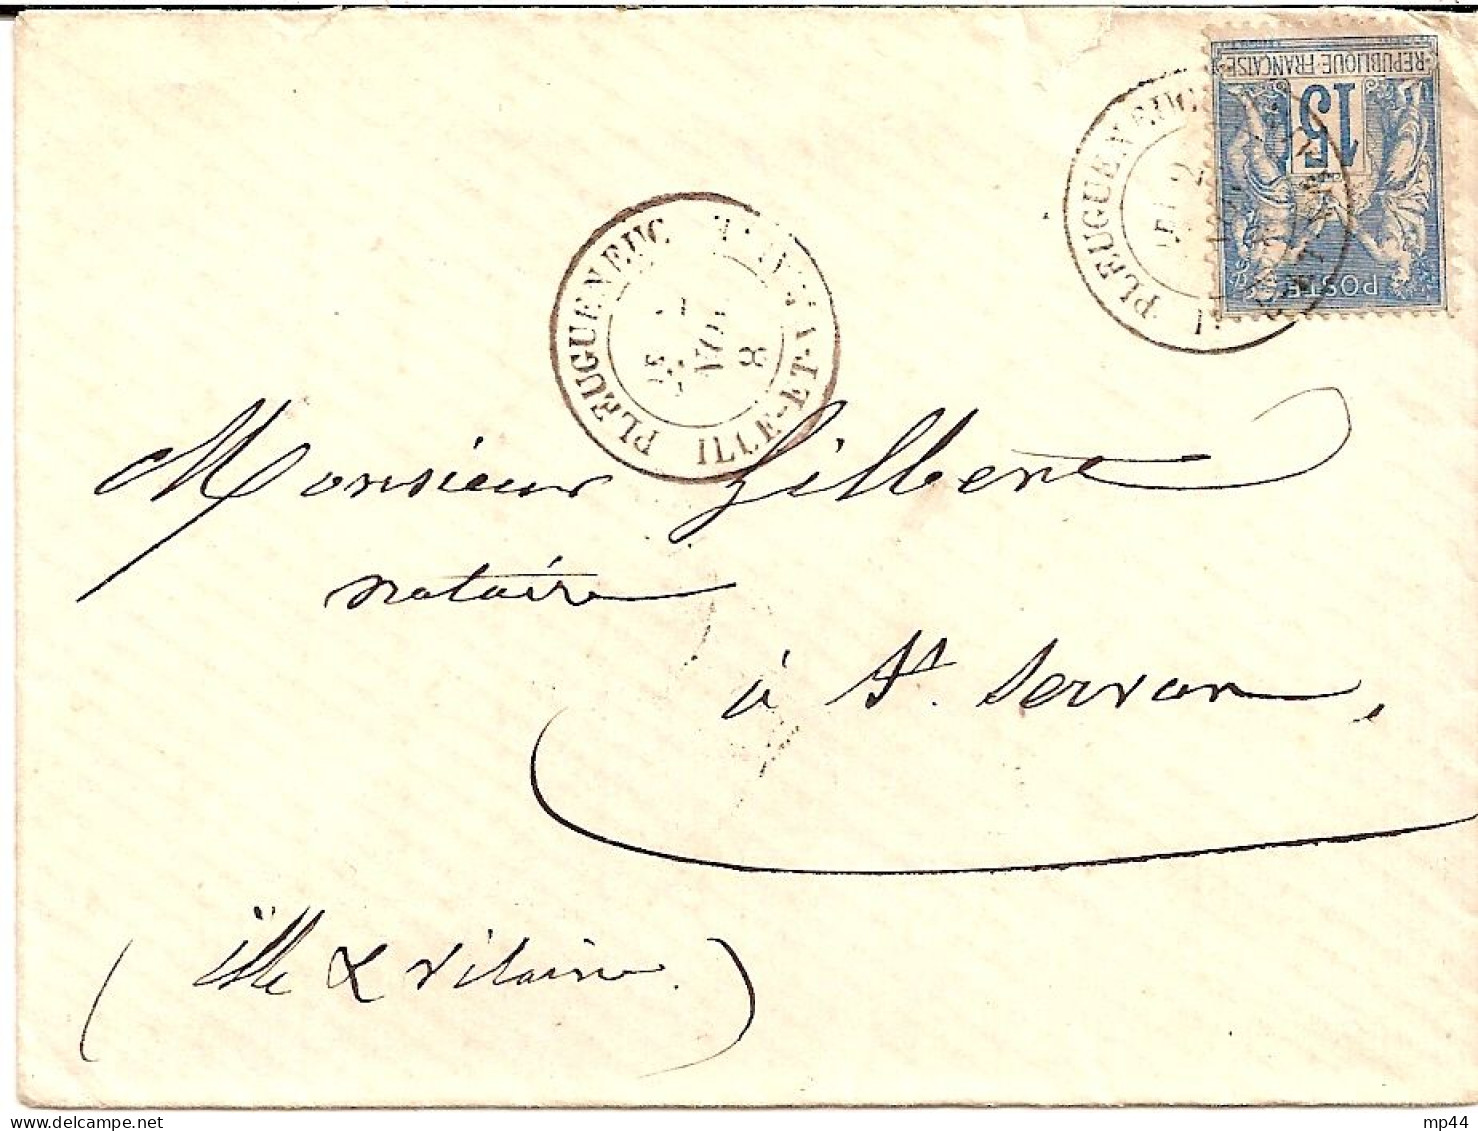 REPUBLIQUE FRANÇAISE
15
POSTE
PLEUGUENEUC
PLEUGUENEUC
ILLE-ET-V
NOV
8
Monsieur Gilbert
notaire
à St. Servan,
(ille & vilaine.)
mp44